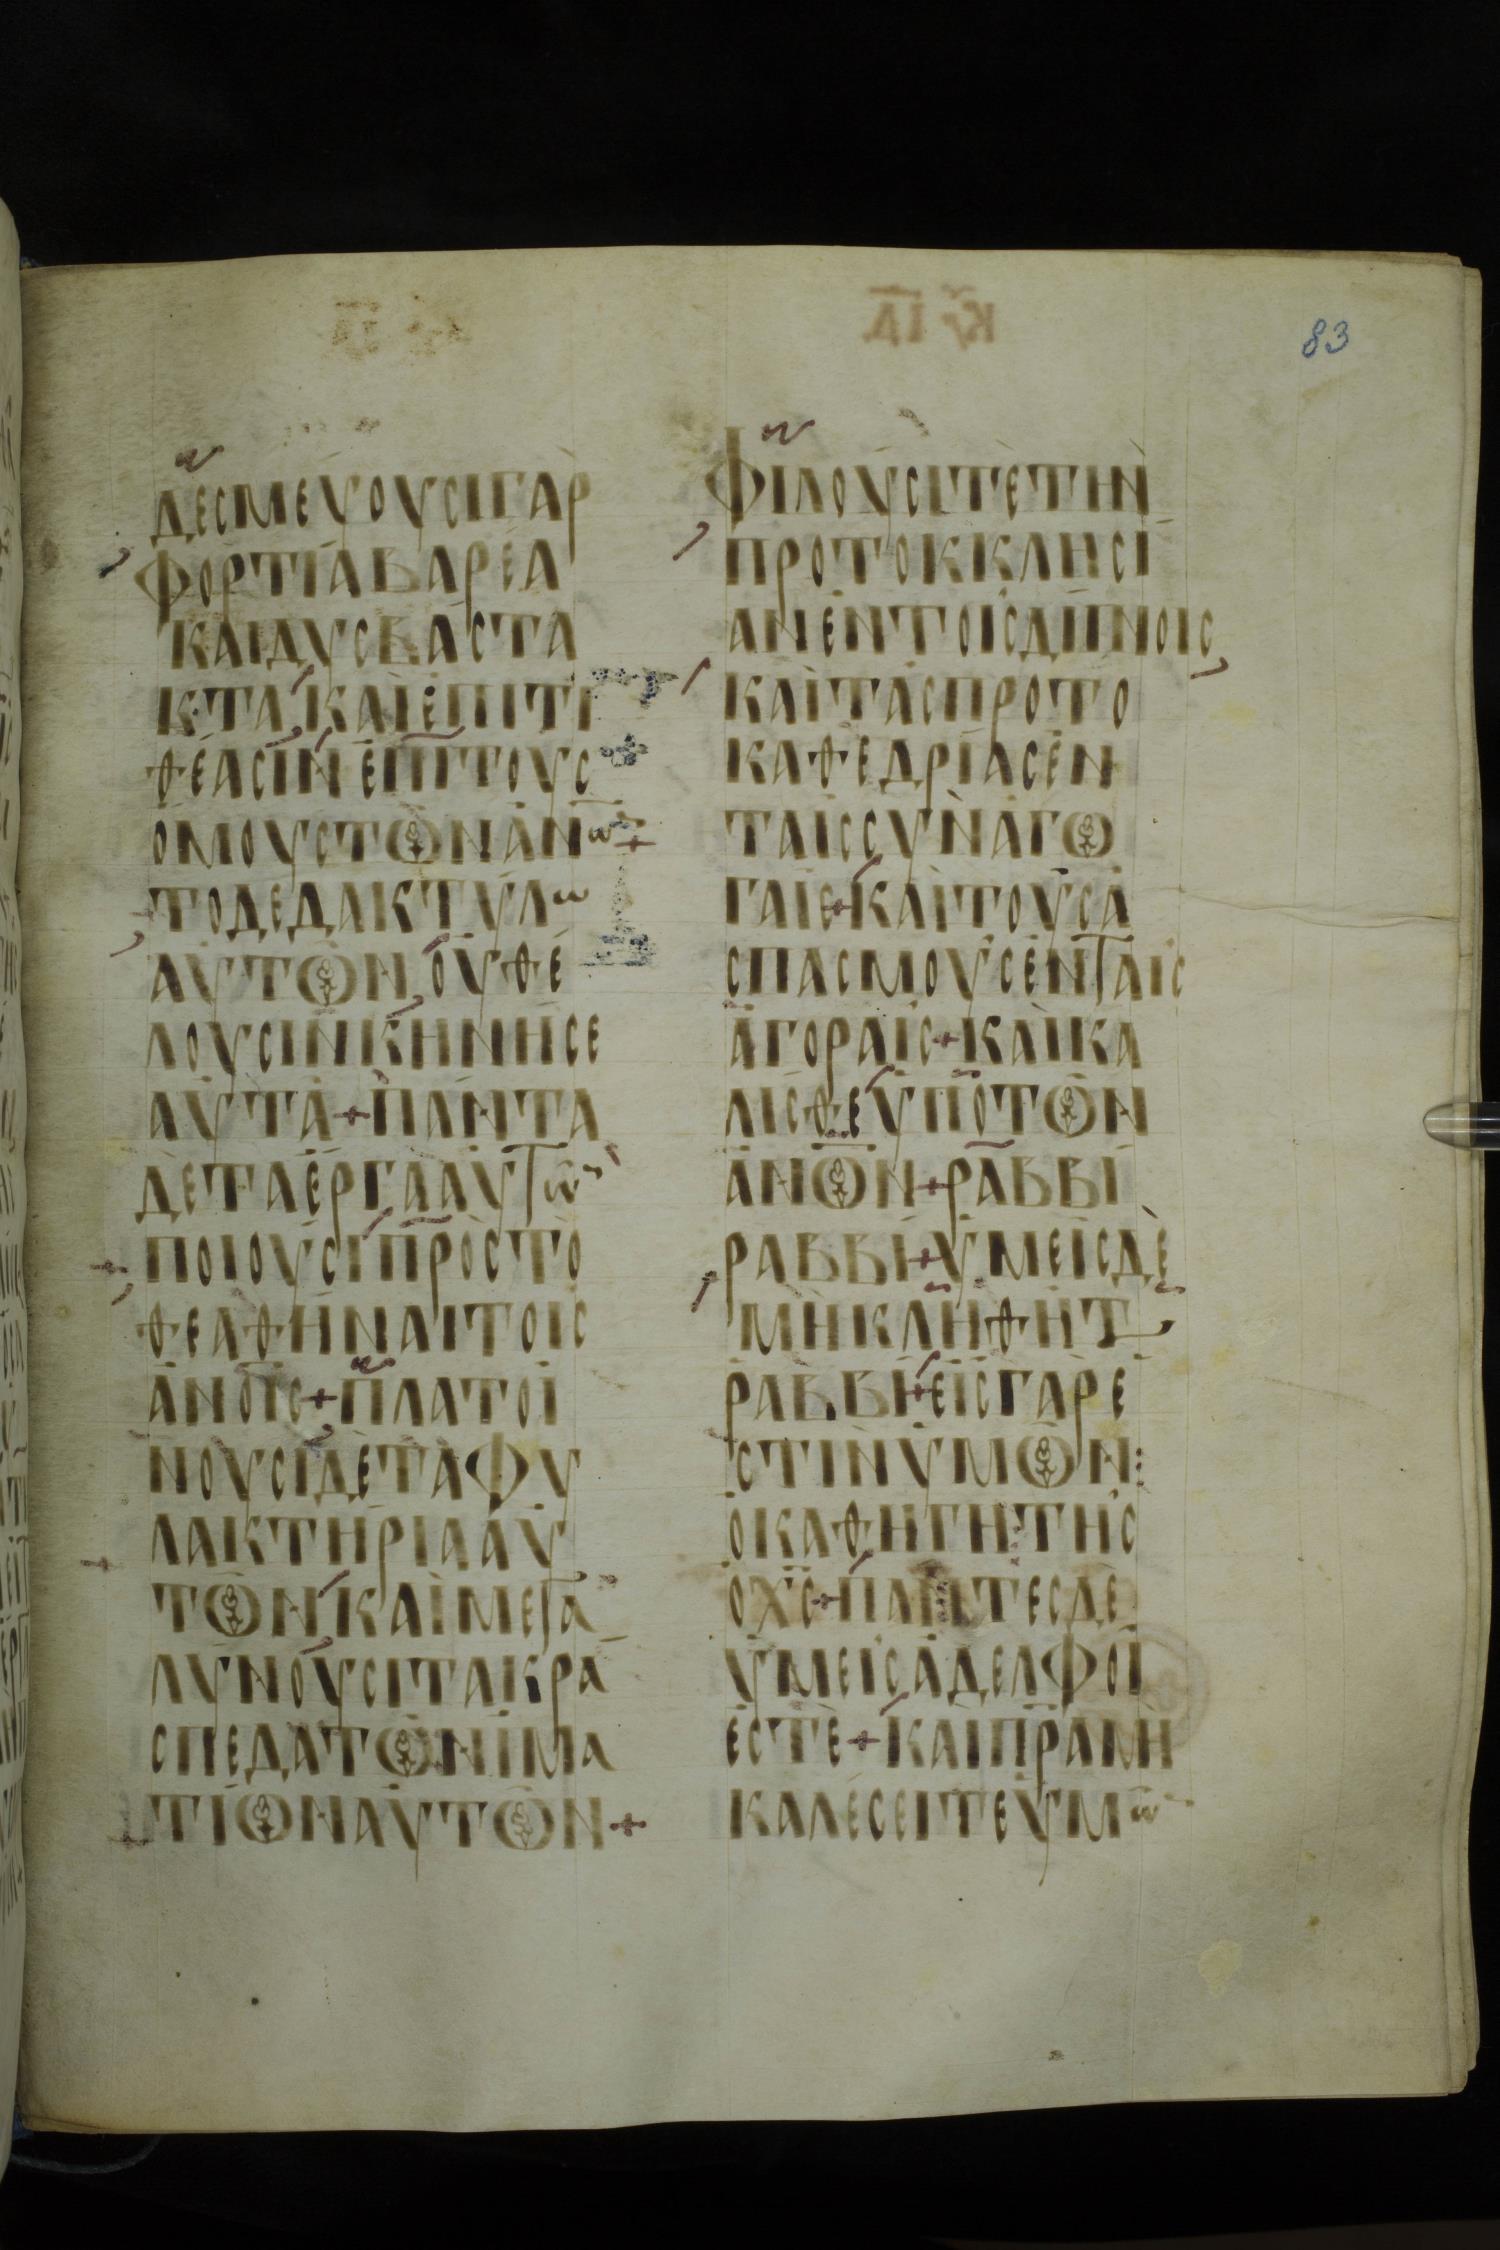 83
ΔΕCΜΕΥΟΥCΙΓΑΡ
ΦΟΡΤΙΑΒΑΡΕΑ
ΚΑΙΔΥCΒΑCΤΑ
ΚΤΑΚΑΙΕΠΙΤΙ
ΘΕΑCΙΝΕΠΙΤΟΥC
ΟΜΟΥCΤΩΝΑΝω̅+
ΤΟΔΕΔΑΚΤΥΛω
ΑΥΤΩΝ,ΟΥΘΕ
ΛΟΥCΙΝΚΗΝΗCΕ
ΑΥΤΑ+ΠΑΝΤΑ
ΔΕΤΑΕΡΓΑΑΥΤω
ΠΟΙΟΥCΙΠΡΟCΤΟ
ΘΕΑΘΗΝΑΙΤΟΙC
ΑΝΟΙC+ΠΛΑΤΟΙ
ΝΟΥCΙΔΕΤΑΦΥ
ΛΑΚΤΗΡΙΑΑΥ
ΤΩΝΚΑΙΜΕΓΑ
ΛΥΝΟΥCΙΤΑΚΡΑ
CΠΕΔΑΤΩΝΙΜΑ
ΤΙΩΝΑΥΤΩΝ+
ΦΙΛΟΥCΙΤΕΤΗΝ
ΠΡΟΤΟΚΚΛΗCΙ
ΑΝΕΝΤΟΙCΔΙΠΝΟΙC,
ΚΑΙΤΑCΠΡΟΤΟ
ΚΑΘΕΔΡΙΑCΕΝ
ΤΑΙCCΥΝΑΓΩ
ΓΑΙC+ΚΑΙΤΟΥCΑ
CΠΑCΜΟΥCΕΝΤΑΙC
ΑΓΟΡΑΙC+ΚΑΙΚΑ
ΛΙCΘΕΥΠΟΤΩΝ
ΑΝΩΝ+ΡΑΒΒΙ
ΡΑΒΒΙ+ΥΜΕΙCΔΕ
ΜΗΚΛΗΘΗΤ
ΡΑΒΒΙ+ΕΙCΓΑΡΕ
CΤΙΝΥΜΩΝ:
ΟΚΑΘΗΓΗΤΗC
ΟΧC+ΠΑΝΤΕCΔΕ
ΥΜΕΙCΑΔΕΛΦΟΙ
ΕCΤΕ+ΚΑΙΠΡΑΜΗ
ΚΑΛΕCΕΙΤΕΥΜω